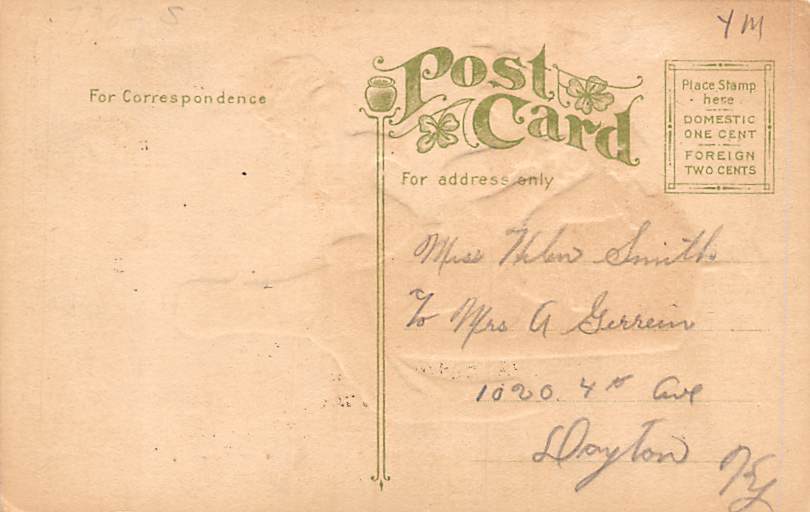 Y M
Post
Card
For Correspondence
For address only
Place Stamp
here
DOMESTIC
ONE CENT
FOREIGN
TWO CENTS
Miss Helen Smith
To Mrs A Gerrein
1020. 4th Ave
Dayton Ky